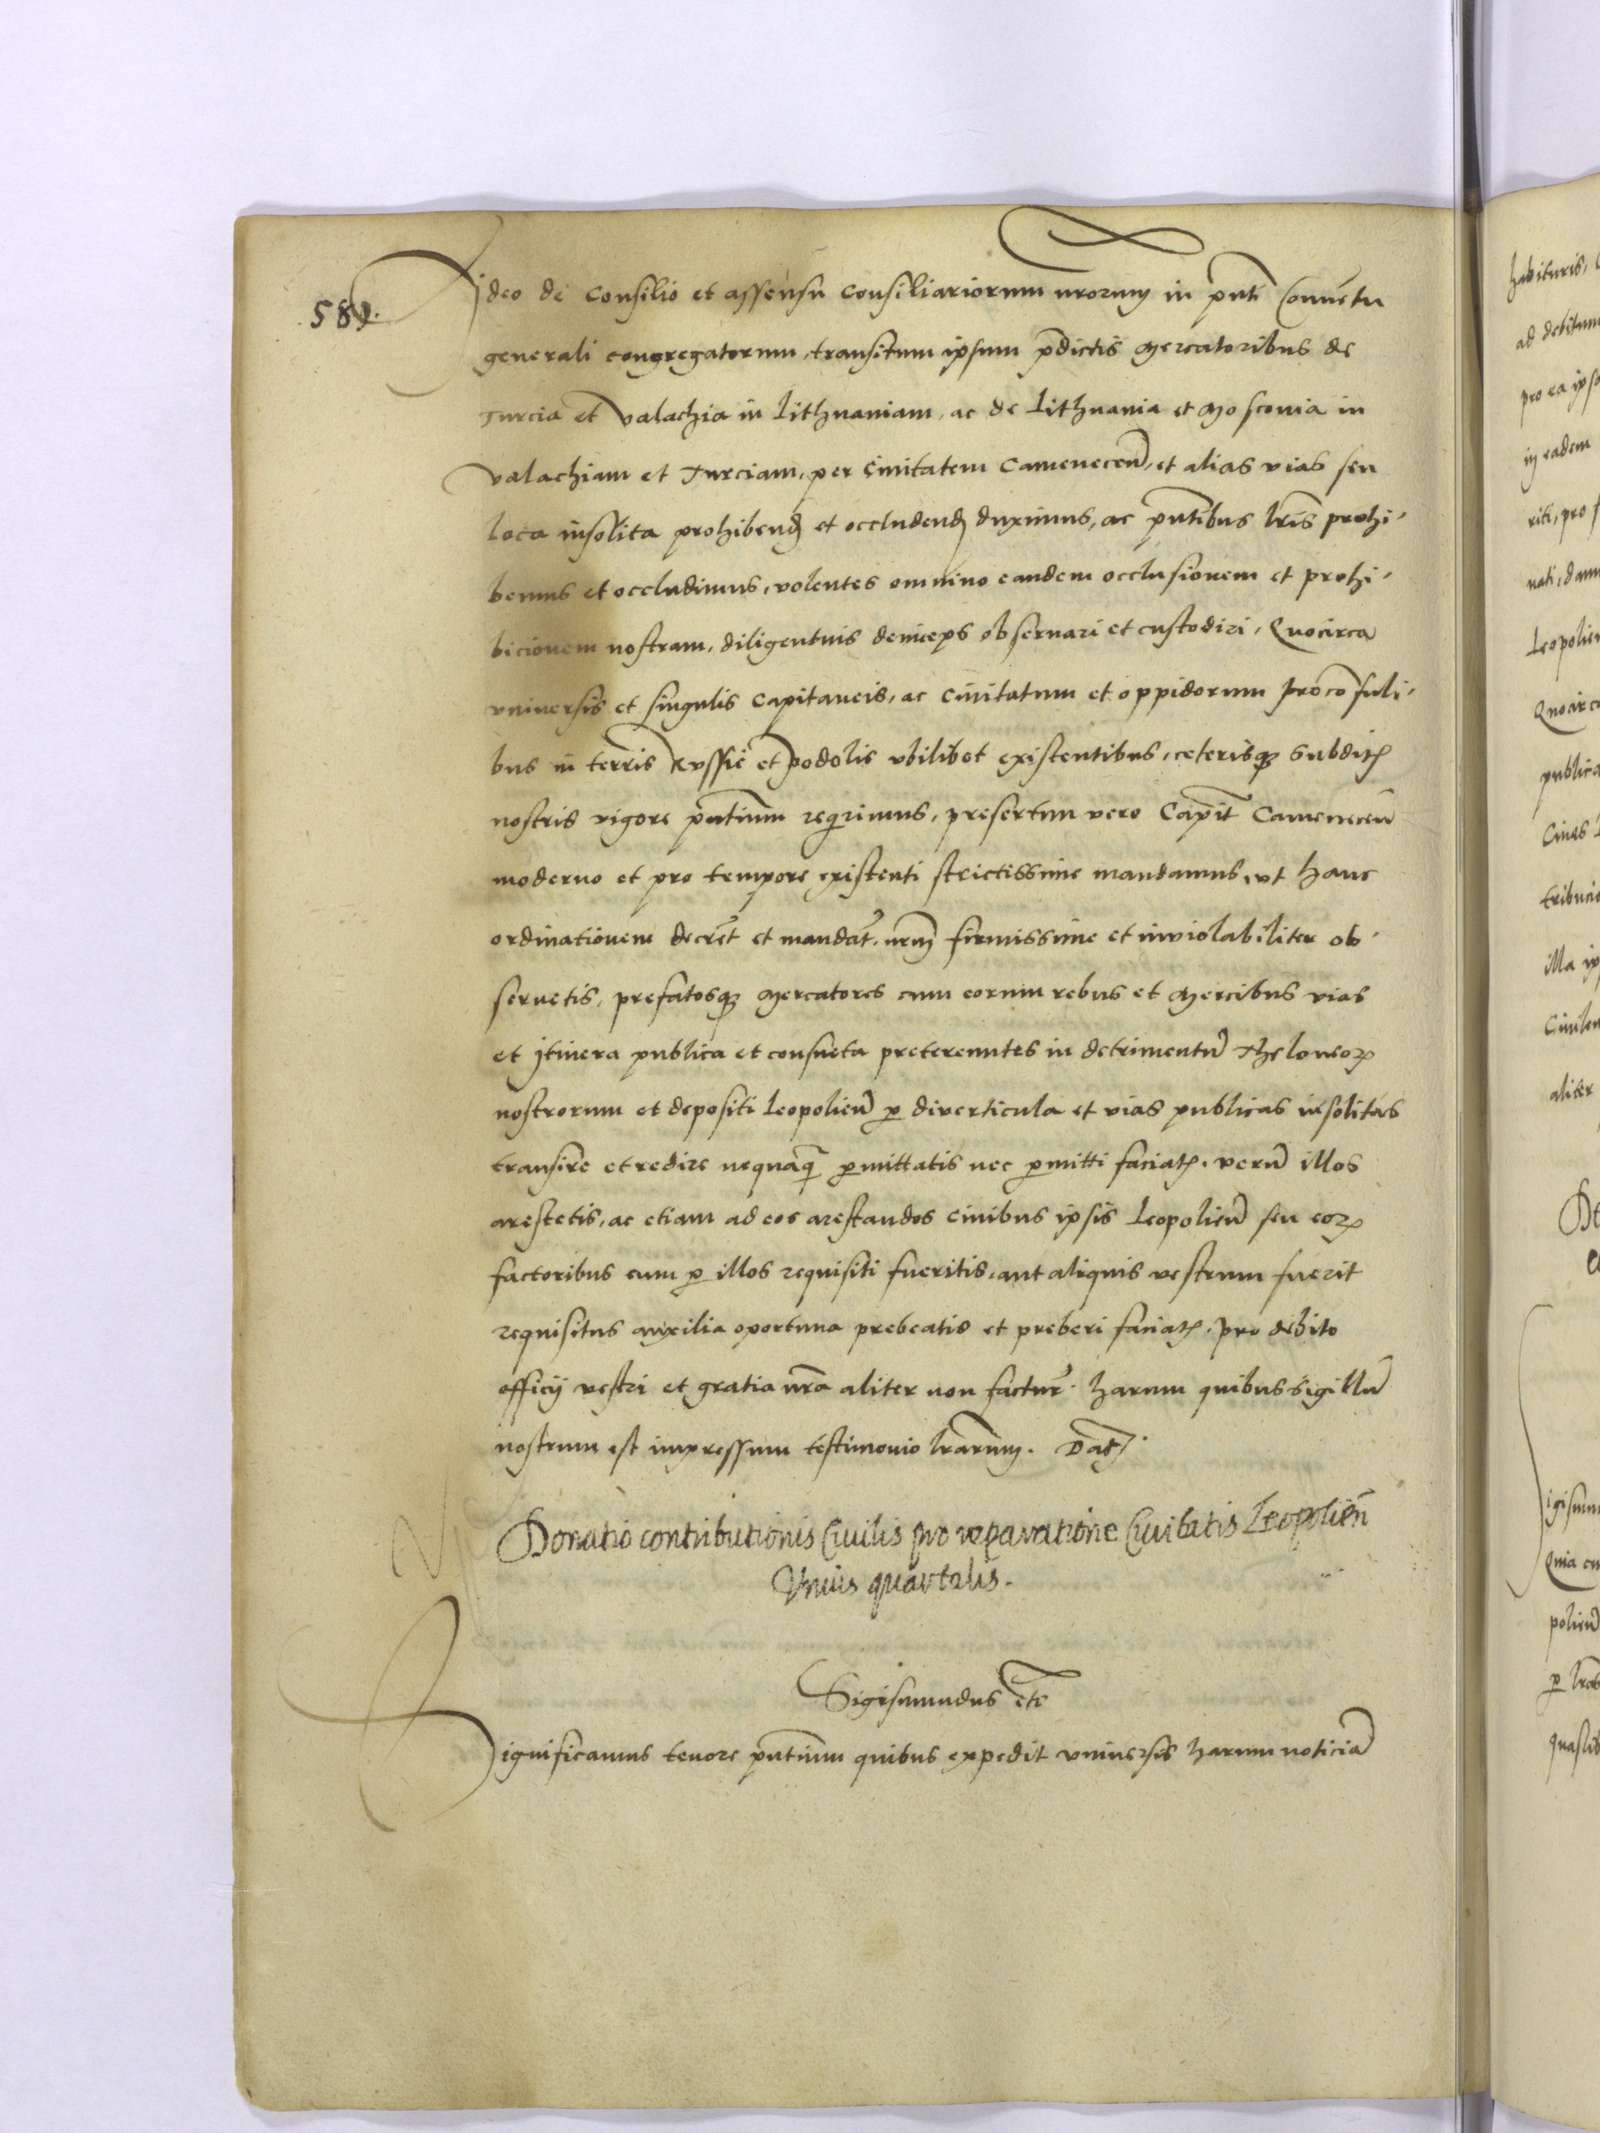 589.
Ideo de consilio et assensu consiliariorum nrorum in pnti Conuētu
generali congregatorum, transitum ipsum p̄dictis Mercatoribus de
Turcia et Valachia in Lithuaniam, ac de Lithuania et Moscouia in
Valachiam et Turciam, per Ciuitatem Cameneceñ, et alias vias seu
loca insolita prohibend et occludend duximus, ac pntibus lris prohi-
bemus et occludimus, volentes omnino eandem occlusionem et prohi-
bicionem nostram, diligentius deinceps obseruari et custodiri, Quocirca
vniuersis et singulis Capitaneis, ac Ciuitatum et oppidorum Proconsuli-
bus in terris Russie et Podolis vbilibet existentibus, ceterisq subditis
nostris vigore pntium requirimus, presertim vero Capit Cameneceñ
moderno et pro tempore existenti strictissime mandamus, vt hanc
ordinationem decret et mandat nrm firmissime et inviolabiliter ob-
seruetis, prefatosq Mercatores cum eorum rebus et Mercibus vias
et Itinera publica et consueta pretereuntes in detrimentū Theloneor
nostrorum et depositi Leopolieñ p diverticula et vias publicas insolitas
transire et redire nequaq pmittatis nec pmitti faciat, verū illos
arestetis, ac etiam ad eos arestandos ciuibus ipsis Leopolieñ seu eor
factoribus cum p illos requisiti fueritis, aut aliquis vestrum fuerit
requisitus auxilia oportuna prebeatis et preberi faciat, pro debito
officij vestri et gratia nra aliter non factur. Harum quibus sigillū
nostrum est impressum testimonio lrarum. Dat
Donatio contributionis Ciuilis pro reparatione Ciuitatis Leopolieñ
Vnius quartalis.
Sigismundus etc
Significamus tenore pntium quibus expedit vniuersis harum noticiā
habituris,
ad debitum
pro ea ipsa
in eadem
riti, pro
Leopolieñ
Quocirca
publica
Ciues
illa
aliter
igismun
Quia
polieñ